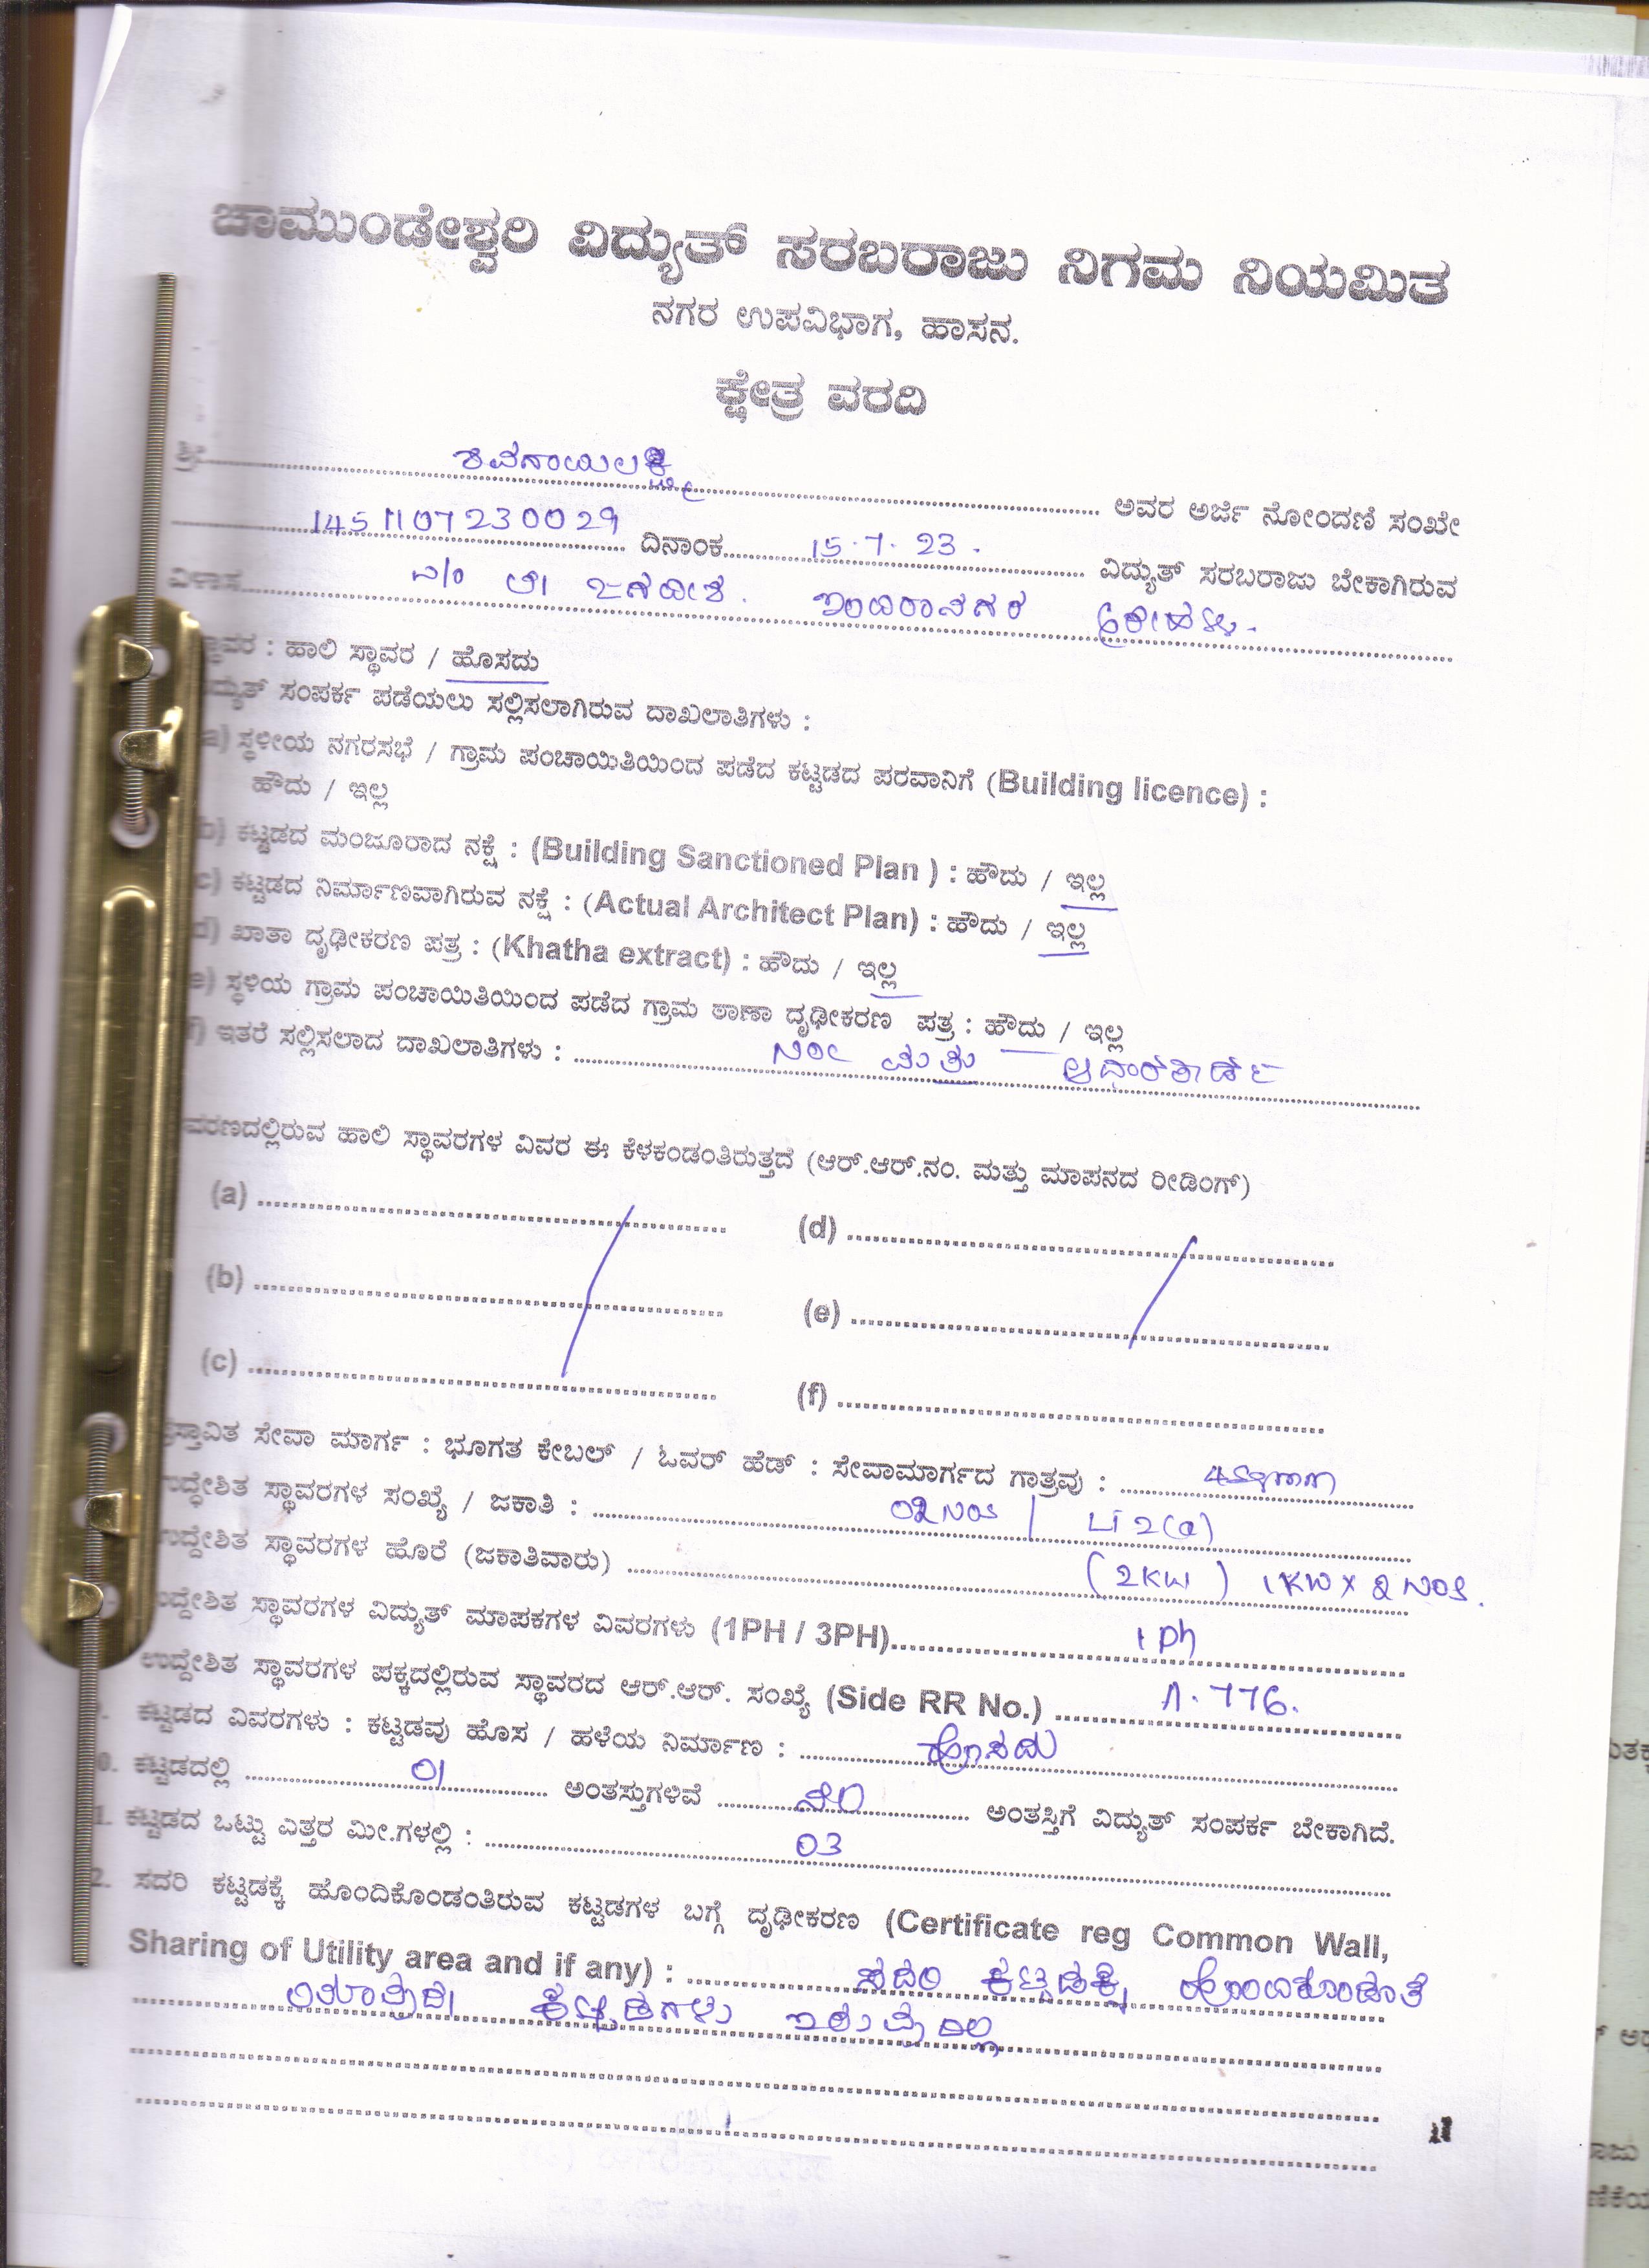 ಚಾಮುಂಡೇಶ್ವರಿ ವಿದ್ಯುತ್ ಸರಬರಾಜು ನಿಗಮ ನಿಯಮಿತ
ನಗರ ಉಪವಿಭಾಗ, ಹಾಸನ.
ಕ್ಷೇತ್ರ ವರದಿ
ಶ್ರೀ ಅವರ ಅರ್ಜಿ ನೋಂದಣಿ ಸಂಖೇ
14511107230029 ದಿನಾಂಕ 15.7.23. ವಿದ್ಯುತ್ ಸರಬರಾಜು ಬೇಕಾಗಿರುವ
ವಿಳಾಸ ಇಂದಿರಾನಗರ
ಸ್ಥಾವರ : ಹಾಲಿ ಸ್ಥಾವರ / ಹೊಸದು
ವಿದ್ಯುತ್ ಸಂಪರ್ಕ ಪಡೆಯಲು ಸಲ್ಲಿಸಲಾಗಿರುವ ದಾಖಲಾತಿಗಳು :
a) ಸ್ಥಳೀಯ ನಗರಸಭೆ / ಗ್ರಾಮ ಪಂಚಾಯಿತಿಯಿಂದ ಪಡೆದ ಕಟ್ಟಡದ ಪರವಾನಿಗೆ (Building licence) :
ಹೌದು / ಇಲ್ಲ
b) ಕಟ್ಟಡದ ಮಂಜೂರಾದ ನಕ್ಷೆ : (Building Sanctioned Plan ) : ಹೌದು / ಇಲ್ಲ
c) ಕಟ್ಟಡದ ನಿರ್ಮಾಣವಾಗಿರುವ ನಕ್ಷೆ : (Actual Architect Plan) : ಹೌದು / ಇಲ್ಲ
d) ಖಾತಾ ದೃಢೀಕರಣ ಪತ್ರ : (Khatha extract) : ಹೌದು / ಇಲ್ಲ
e) ಸ್ಥಳಿಯ ಗ್ರಾಮ ಪಂಚಾಯಿತಿಯಿಂದ ಪಡೆದ ಗ್ರಾಮ ಠಾಣಾ ದೃಢೀಕರಣ ಪತ್ರ : ಹೌದು / ಇಲ್ಲ
f) ಇತರೆ ಸಲ್ಲಿಸಲಾದ ದಾಖಲಾತಿಗಳು : NOC ಮತ್ತು ಆಧಾರಕಾರ್ಡ್
ವರಣದಲ್ಲಿರುವ ಹಾಲಿ ಸ್ಥಾವರಗಳ ವಿವರ ಈ ಕೆಳಕಂಡಂತಿರುತ್ತದೆ (ಆರ್.ಆರ್.ನಂ. ಮತ್ತು ಮಾಪನದ ರೀಡಿಂಗ್)
(a) (d)
(b) (e)
(c) (f)
ಪ್ರಸ್ತಾವಿತ ಸೇವಾ ಮಾರ್ಗ : ಭೂಗತ ಕೇಬಲ್ / ಓವರ್ ಹೆಡ್ : ಸೇವಾಮಾರ್ಗದ ಗಾತ್ರವು : 4Sqmm
ಉದ್ಧೇಶಿತ ಸ್ಥಾವರಗಳ ಸಂಖ್ಯೆ / ಜಕಾತಿ : 02 NOS | LT 2(a)
ಉದ್ದೇಶಿತ ಸ್ಥಾವರಗಳ ಹೊರೆ (ಜಕಾತಿವಾರು) (2KW) 1KW X 2 NOS.
ಉದ್ದೇಶಿತ ಸ್ಥಾವರಗಳ ವಿದ್ಯುತ್ ಮಾಪಕಗಳ ವಿವರಗಳು (1PH / 3PH) 1 Ph
ಉದ್ದೇಶಿತ ಸ್ಥಾವರಗಳ ಪಕ್ಕದಲ್ಲಿರುವ ಸ್ಥಾವರದ ಆರ್.ಆರ್. ಸಂಖ್ಯೆ (Side RR No.) 776.
ಕಟ್ಟಡದ ವಿವರಗಳು : ಕಟ್ಟಡವು ಹೊಸ / ಹಳೆಯ ನಿರ್ಮಾಣ : ಹೊಸದು
0. ಕಟ್ಟಡದಲ್ಲಿ 01 ಅಂತಸ್ತುಗಳಿವೆ ನೇ ಅಂತಸ್ತಿಗೆ ವಿದ್ಯುತ್ ಸಂಪರ್ಕ ಬೇಕಾಗಿದೆ.
1. ಕಟ್ಟಡದ ಒಟ್ಟು ಎತ್ತರ ಮೀ.ಗಳಲ್ಲಿ : 03
2. ಸದರಿ ಕಟ್ಟಡಕ್ಕೆ ಹೊಂದಿಕೊಂಡಂತಿರುವ ಕಟ್ಟಡಗಳ ಬಗ್ಗೆ ದೃಢೀಕರಣ (Certificate reg Common Wall,
Sharing of Utility area and if any) : ಸದರಿ ಕಟ್ಟಡಕ್ಕೆ ಹೊಂದಿಕೊಂಡಂತೆ
ಯಾವುದೇ ಕಟ್ಟಡಗಳು ಇರುವುದಿಲ್ಲ